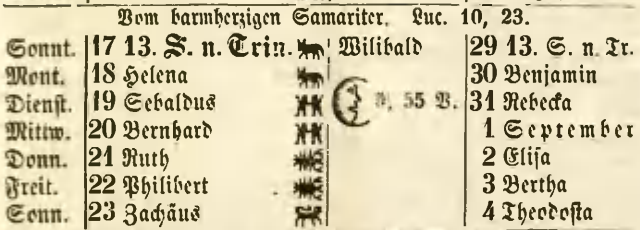 Vom barmherzigen Samariter. Luc. 10, 23.
Sonnt. 17 13. S. n. Trin. Wilibald 29 13. S. n. Tr.
Mont. 18 Helena 30 Benjamin
Dienst. 19 Sebaldus 55 V. 31 Rebecka
Mittw. 20 Bernhard 1 September
Donn. 21 Ruth 2 Elisa
Freit. 22 Philibert 3 Bertha
Sonn. 23 Zachäus 4 Theodosia